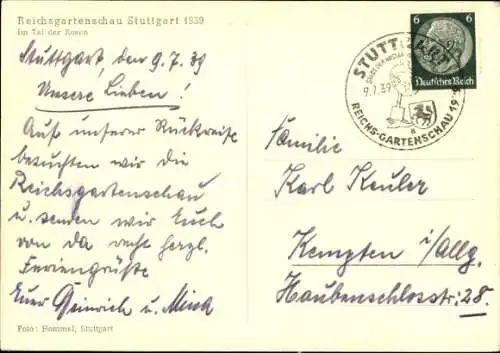 Reichsgartenschau Stuttgart 1939
Im Tal der Rosen
Stuttgart, den 9.7.39
Unsere Lieben!
Auf unserer Rückreise
besuchten wir die
Reichsgartenschau
u. senden wir Euch
von da recht herzl.
Feriengrüße
Euer Heinrich u.
Foto: Hommel, Stuttgart
6 6
Deutsches Reich
STUTT
9.7.39
REICHS-GARTENSCHAU 19
a
Familie
Karl Keuler
Kempten i/Allg.
Haubenschlosstr: 28.